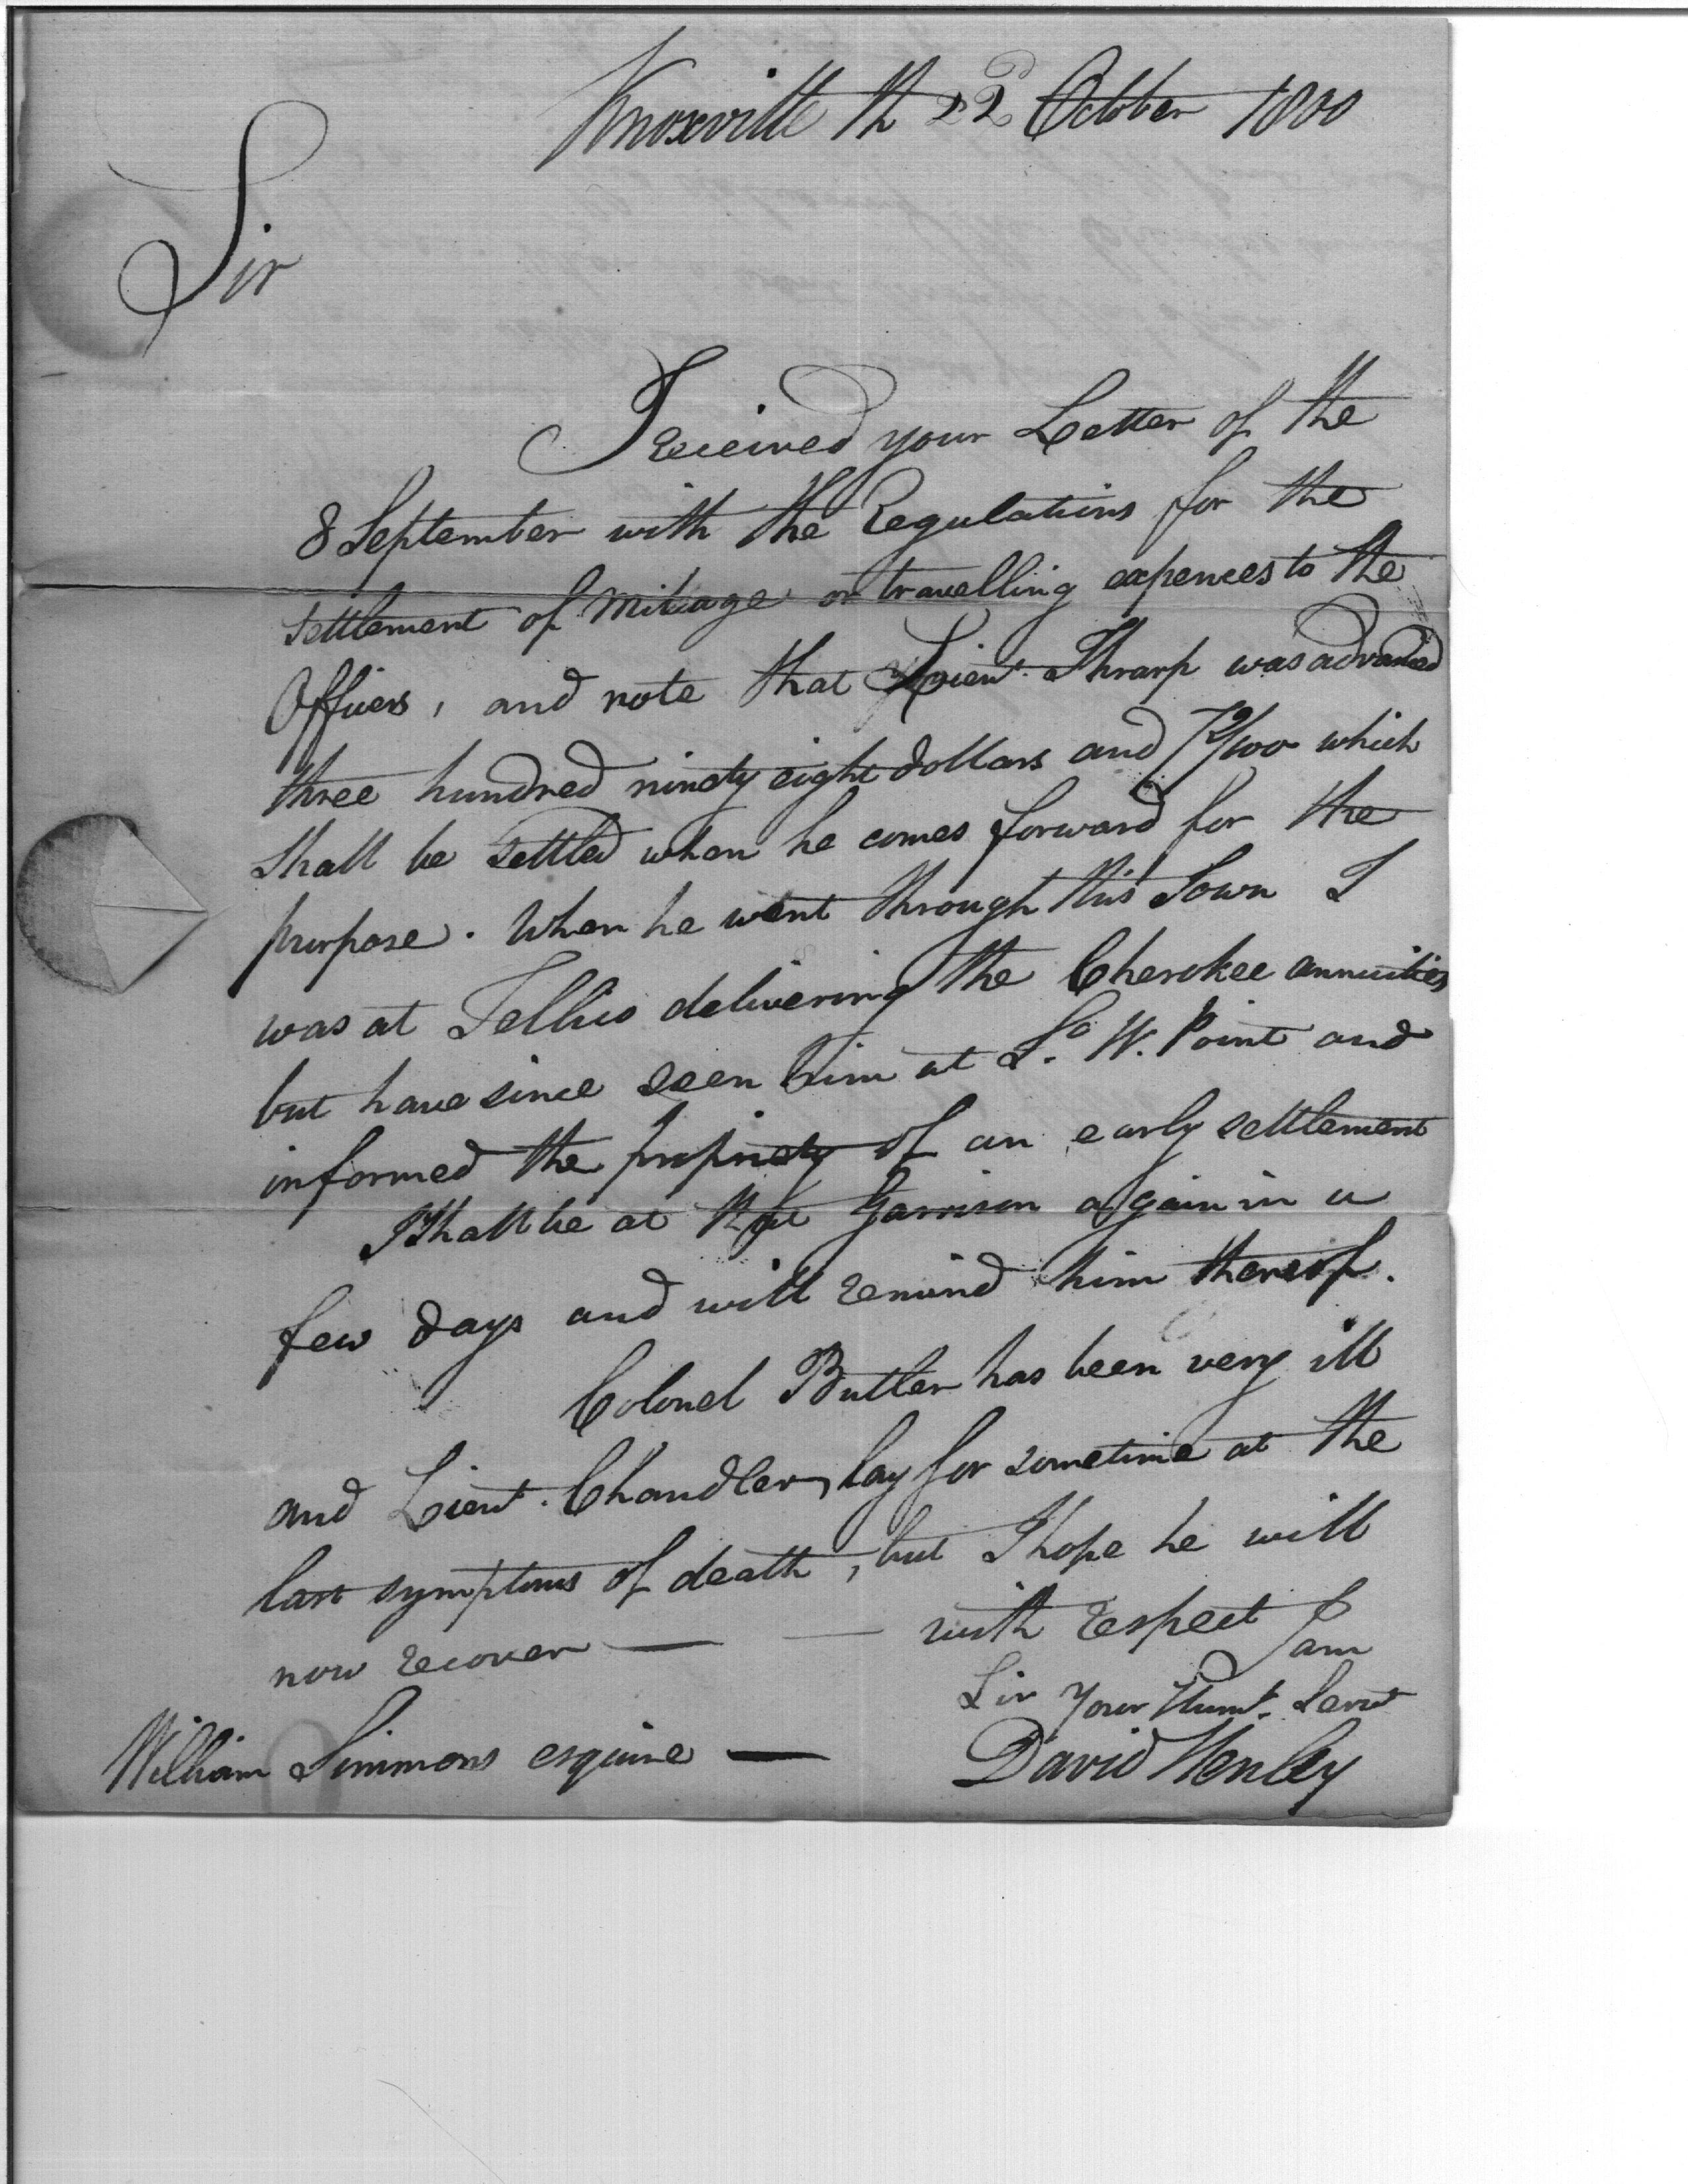 Knoxville th 22d October 1800
Sir
I received your Letter of the
8 September with the Regulations for the
settlement of mileage or travelling expences to the
Officers, and note that Lieut. Thrarp was advanced
three hundred ninety eight dollars and 72/100 which
shall be settled when he comes forward for the
purpose. When he went through this Town I
was at Tellico delivering the Cherokee annuities
but have since seen him at So. W. Point and
informed the propriety of an early settlement
I shall be at that Garrison again in a
few days and will remind him thereof.
Colonel Butler has been very ill
and Lieut. Chandler, lay for sometime at the
last symptoms of death, but I hope he will
now recover — — with respect I am
Sir Your Humt. Servt
William Simmons esquire — David Henley